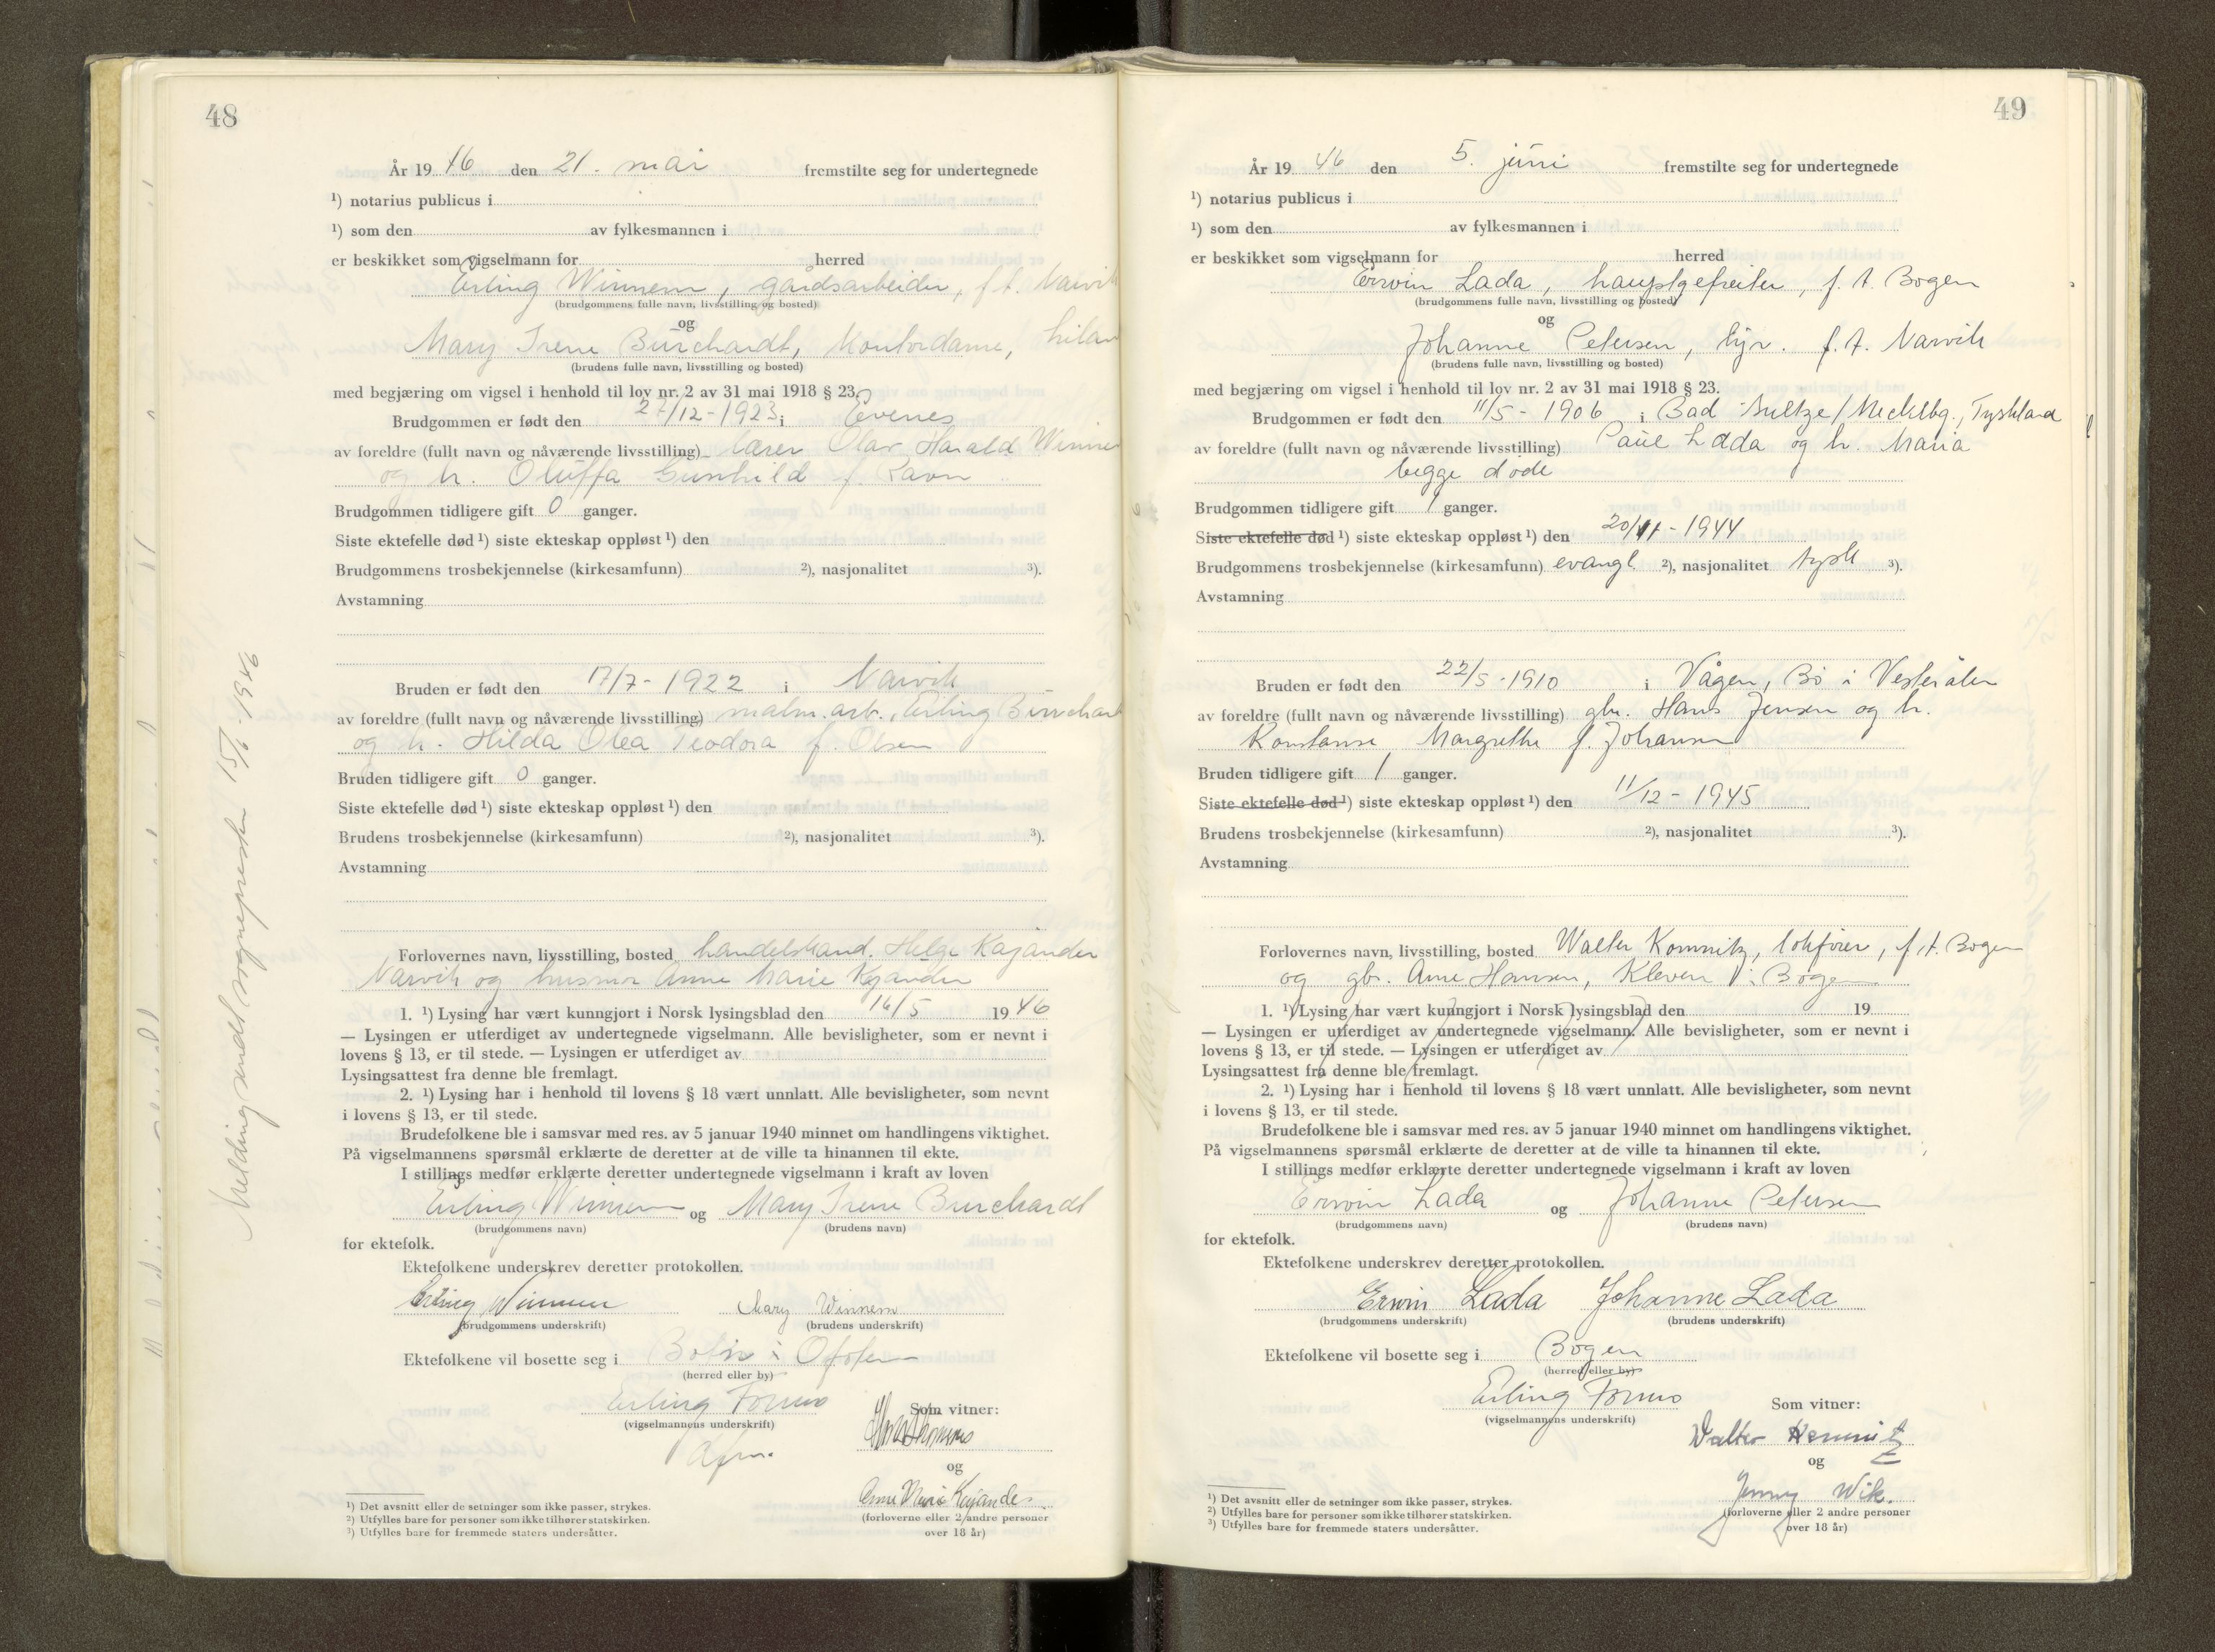 48
År 19 46 den 21. mai fremstilte seg for undertegnede
¹) notarius publicus i
¹) som den av fylkesmannen i
er beskikket som vigselmann for herred
Erling Winnem, gårdsarbeider, f.t. Narvik
(brudgommens fulle navn, livsstilling og bosted)
og
Mary Irene Burchardt, kontordame,
(brudens fulle navn, livsstilling og bosted)
med begjæring om vigsel i henhold til lov nr. 2 av 31 mai 1918 § 23.
Brudgommen er født den 27/12-1923 i Evenes
av foreldre (fullt navn og nåværende livsstilling) lærer Olav Harald Winnem
og h. Oluffa Gunhild f. Ravn
Brudgommen tidligere gift 0 ganger.
Siste ektefelle død ¹) siste ekteskap oppløst ¹) den
Brudgommens trosbekjennelse (kirkesamfunn) ²), nasjonalitet ³).
Avstamning
Bruden er født den 17/7-1922 i Narvik
av foreldre (fullt navn og nåværende livsstilling) malm.arb. Erling Burchardt
og h. Hilda Olea Teodora f. Olsen
Bruden tidligere gift 0 ganger.
Siste ektefelle død ¹) siste ekteskap oppløst ¹) den
Brudens trosbekjennelse (kirkesamfunn) ²), nasjonalitet ³).
Avstamning
Forlovernes navn, livsstilling, bosted handelsmand. Helge Kajander
Narvik og husmor Anne Marie Kajander
1. ¹) Lysing har vært kunngjort i Norsk lysingsblad den 16/5 19 46
— Lysingen er utferdiget av undertegnede vigselmann. Alle bevisligheter, som er nevnt i
lovens § 13, er til stede. — Lysingen er utferdiget av
Lysingsattest fra denne ble fremlagt.
2. ¹) Lysing har i henhold til lovens § 18 vært unnlatt. Alle bevisligheter, som nevnt
i lovens § 13, er til stede.
Brudefolkene ble i samsvar med res. av 5 januar 1940 minnet om handlingens viktighet.
På vigselmannens spørsmål erklærte de deretter at de ville ta hinannen til ekte.
I stillings medfør erklærte deretter undertegnede vigselmann i kraft av loven
Erling Winnem og Mary Irene Burchardt
(brudgommens navn) (brudens navn)
for ektefolk.
Ektefolkene underskrev deretter protokollen.
Erling Winnem Mary Winnem
(brudgommens underskrift) (brudens underskrift)
Ektefolkene vil bosette seg i i Ofoten
(herred eller by)
Erling Formo
(vigselmannens underskrift)
Som vitner:
og
Anne Marie Kajander
(forloverne eller 2 andre personer
over 18 år)
¹) Det avsnitt eller de setninger som ikke passer, strykes.
²) Utfylles bare for personer som ikke tilhører statskirken.
³) Utfylles bare for fremmede staters undersåtter.
Melding sendt sognepresten 15/6 1946
49
År 19 46 den 5. juni fremstilte seg for undertegnede
¹) notarius publicus i
¹) som den av fylkesmannen i
er beskikket som vigselmann for herred
Erwin Lada, hauptgefreiter, f.t. Bogen
(brudgommens fulle navn, livsstilling og bosted)
og
Johanne Petersen, hjv. f.t. Narvik
(brudens fulle navn, livsstilling og bosted)
med begjæring om vigsel i henhold til lov nr. 2 av 31 mai 1918 § 23.
Brudgommen er født den 11/5-1906 i Bad Sultze/Mecklbg., Tyskland
av foreldre (fullt navn og nåværende livsstilling) Paul Lada og h. Maria
begge døde
Brudgommen tidligere gift 1 ganger.
Siste ektefelle død ¹) siste ekteskap oppløst ¹) den 20/11-1944
Brudgommens trosbekjennelse (kirkesamfunn) evangl. ²), nasjonalitet tysk ³).
Avstamning
Bruden er født den 22/5-1910 i Vågen, Bø i Vesterålen
av foreldre (fullt navn og nåværende livsstilling) gbr. Hans Jensen og h.
Konstanse Margrethe f. Johansen
Bruden tidligere gift 1 ganger.
Siste ektefelle død ¹) siste ekteskap oppløst ¹) den 11/12-1945
Brudens trosbekjennelse (kirkesamfunn) ²), nasjonalitet ³).
Avstamning
Forlovernes navn, livsstilling, bosted Walter Komnitz, lokfører, f.t. Bogen
og gbr. Arne Hansen, Kleven i Bogen
1. ¹) Lysing har vært kunngjort i Norsk lysingsblad den 19
— Lysingen er utferdiget av undertegnede vigselmann. Alle bevisligheter, som er nevnt i
lovens § 13, er til stede. — Lysingen er utferdiget av
Lysingsattest fra denne ble fremlagt.
2. ¹) Lysing har i henhold til lovens § 18 vært unnlatt. Alle bevisligheter, som nevnt
i lovens § 13, er til stede.
Brudefolkene ble i samsvar med res. av 5 januar 1940 minnet om handlingens viktighet.
På vigselmannens spørsmål erklærte de deretter at de ville ta hinannen til ekte.
I stillings medfør erklærte deretter undertegnede vigselmann i kraft av loven
Erwin Lada og Johanne Petersen
(brudgommens navn) (brudens navn)
for ektefolk.
Ektefolkene underskrev deretter protokollen.
Erwin Lada Johanne Lada
(brudgommens underskrift) (brudens underskrift)
Ektefolkene vil bosette seg i Bogen
(herred eller by)
Erling Formo
(vigselmannens underskrift)
Som vitner:
Walter Komnitz
og
Jenny Wik.
(forloverne eller 2 andre personer
over 18 år)
¹) Det avsnitt eller de setninger som ikke passer, strykes.
²) Utfylles bare for personer som ikke tilhører statskirken.
³) Utfylles bare for fremmede staters undersåtter.